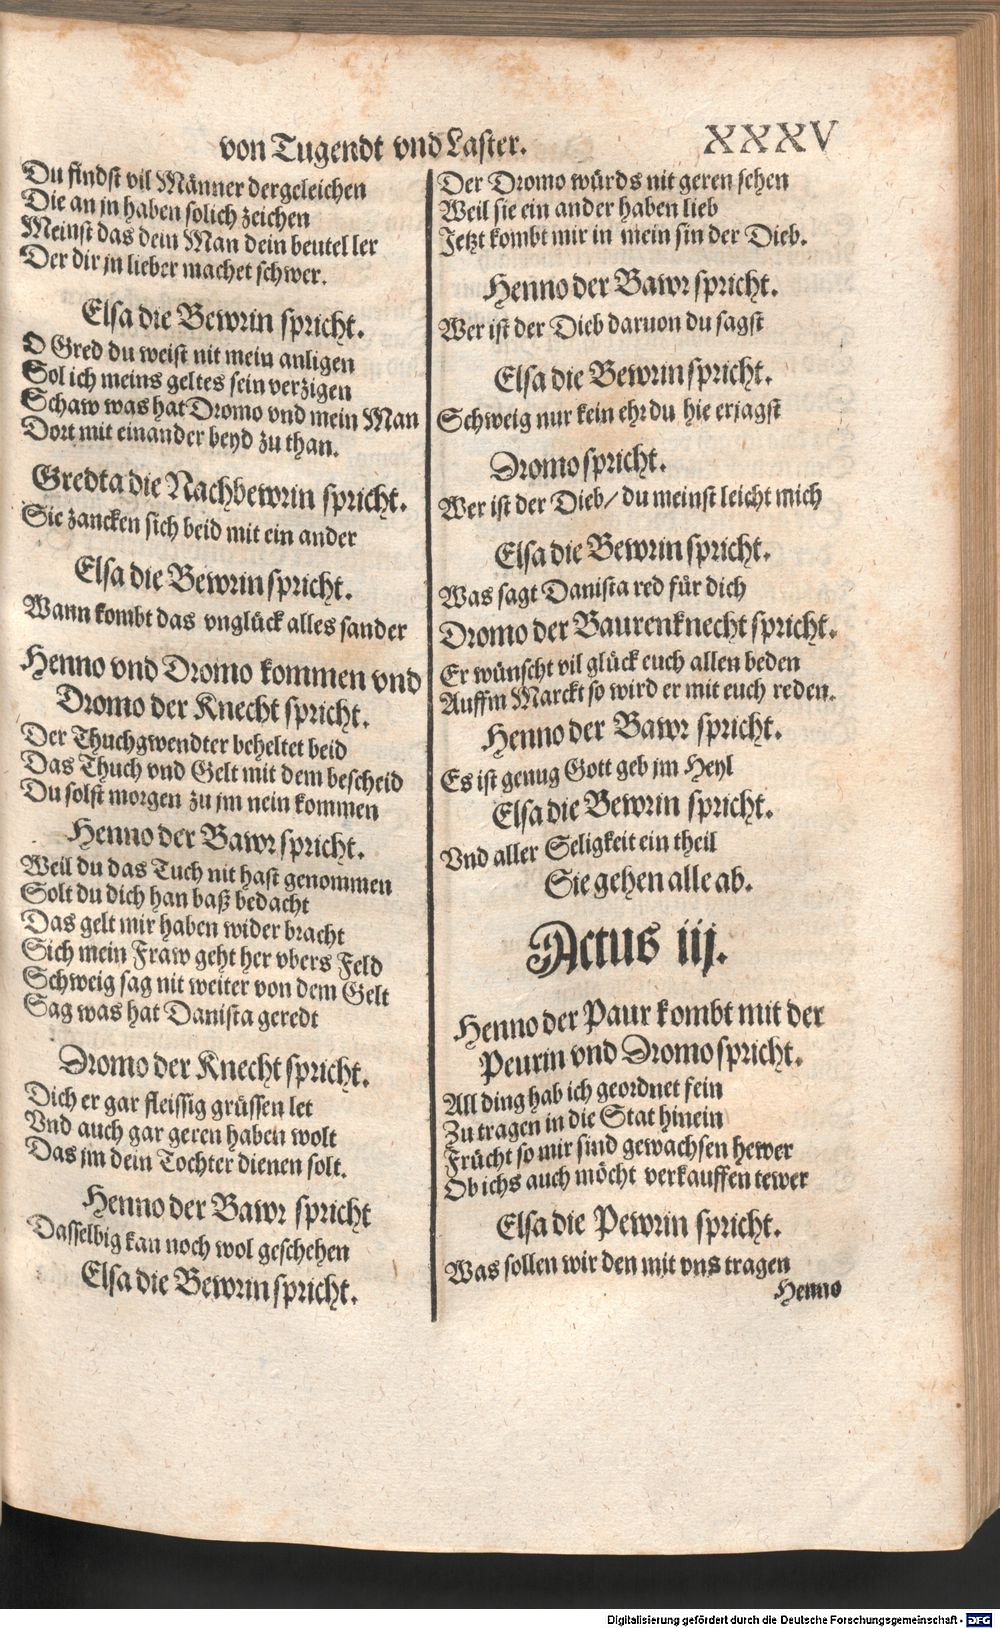 von Tugendt vnd Laster.
XXXV
Du findst vil Männer dergeleichen
Die an jn haben solich zeichen
Meinst das dein Man dein beutel ler
Der dir jn lieber machet schwer.
Elsa die Bewrin spricht.
O Gred du weist nit mein anligen
Sol ich meins geltes sein verzigen
Schaw was hat Dromo vnd mein Man
Dort mit einander beyd zu than.
Gredta die Nachbewrin spricht.
Sie zancken sich beid mit ein ander
Elsa die Bewrin spricht.
Wann kombt das vnglück alles sander
Henno vnd Dromo kommen vnd
Dromo der Knecht spricht.
Der Thuchgwendter beheltet beid
Das Thuch vnd Gelt mit dem bescheid
Du solst morgen zu jm nein kommen
Henno der Bawr spricht.
Weil du das Tuch nit hast genommen
Solt du dich han baß bedacht
Das gelt mir haben wider bracht
Sich mein Fraw geht her vbers Feld
Schweig sag nit weiter von dem Gelt
Sag was hat Danista geredt
Dromo der Knecht spricht.
Dich er gar fleissig grüssen let
Vnd auch gar geren haben wolt
Das jm dein Tochter dienen solt.
Henno der Bawr spricht
Dasselbig kan noch wol geschehen
Elsa die Bewrin spricht.
Der Dromo würds nit geren sehen
Weil sie ein ander haben lieb
Jetzt kombt mir in mein sin der Dieb.
Henno der Bawr spricht.
Wer ist der Dieb daruon du sagst
Elsa die Bewrin spricht.
Schweig nur kein ehr du hie erjagst
Dromo spricht.
Wer ist der Dieb/ du meinst leicht mich
Elsa die Bewrin spricht.
Was sagt Danista red für dich
Dromo der Baurenknecht spricht.
Er wünscht vil glück euch allen beden
Auffm Marckt so wird er mit euch reden.
Henno der Bawr spricht.
Es ist genug Gott geb jm Heyl
Elsa die Bewrin spricht.
Vnd aller Seligkeit ein theil
Sie gehen alle ab.
Actus iij.
Henno der Paur kombt mit der
Peurin vnd Dromo spricht.
All ding hab ich geordnet fein
Zu tragen in die Stat hinein
Frücht so mir sind gewachsen hewer
Ob ichs auch möcht verkauffen tewer
Elsa die Pewrin spricht.
Was sollen wir den mit vns tragen
Henno
Digitalisierung gefördert durch die Deutsche Forschungsgemeinschaft - DFG